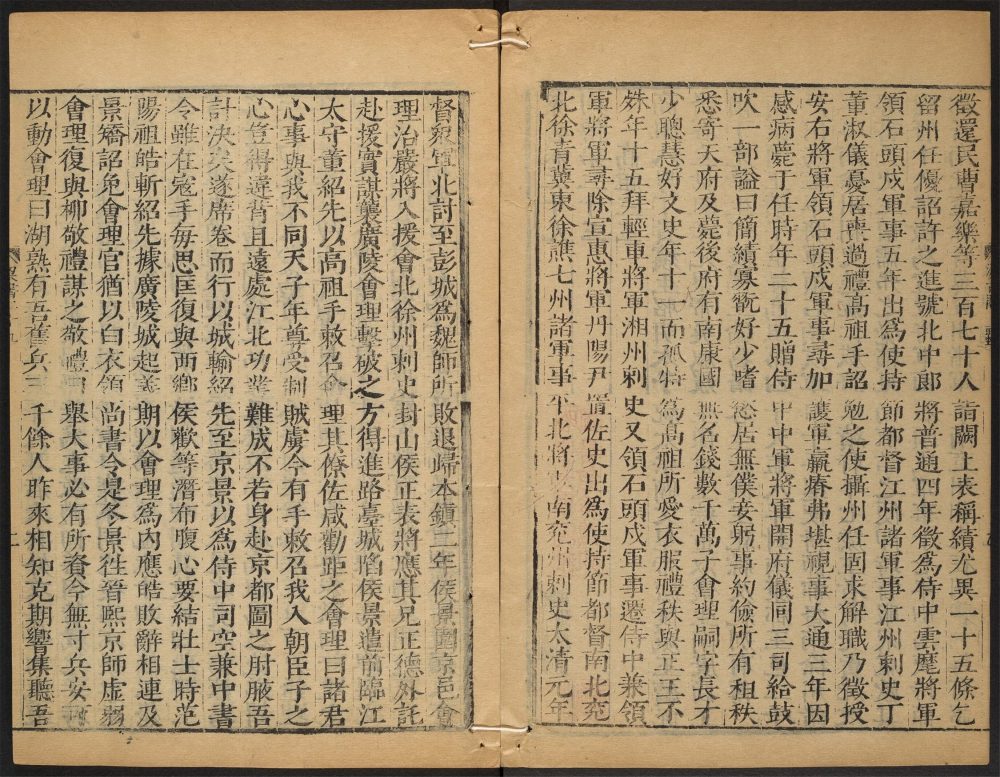 徵還民曹嘉樂等三百七十人詣闕上表稱績尤異一十五條乞
留州任優詔許之進號北中郎將普通四年徵爲侍中雲麾將軍
領石頭戍軍事五年出爲使持節都督江州諸軍事江州刺史丁
董淑儀憂居喪過禮高祖手詔勉之使攝州任固求解職乃徵授
安右將軍領石頭戍軍事尋加護軍羸瘠弗堪視事大通三年因
感病薨于任時年二十五贈侍中中軍將軍開府儀同三司給鼓
吹一部謚曰簡績寡翫好少嗜慾居無僕妾躬事約儉所有租秩
悉寄天府及薨後府有南康國無名錢數千萬子會理嗣字長才
少聰慧好文史年十一而孤特爲高祖所愛衣服禮秩與正王不
殊年十五拜輕車將軍湘州刺史又領石頭戍軍事遷侍中兼領
軍將軍尋除宣惠將軍丹陽尹置佐史出爲使持節都督南北兗
北徐青冀東徐譙七州諸軍事平北將軍南兗州刺史太清元年
督衆軍北討至彭城爲魏師所敗退歸本鎮二年侯景圍京邑會
理治嚴將入援會北徐州刺史封山侯正表將應其兄正德外託
赴援實謀襲廣陵會理擊破之方得進路臺城陷侯景遣前臨江
太守董紹先以高祖手敕召會理其僚佐咸勸距之會理曰諸君
心事與我不同天子年尊受制賊虜今有手敕召我入朝臣子之
心豈得違背且遠處江北功業難成不若身赴京都圖之肘腋吾
計決矣遂席卷而行以城輸紹先至京景以爲侍中司空兼中書
令雖在寇手每思匡復與西鄉侯歡等潛布腹心要結壯士時范
陽祖皓斬紹先據廣陵城起義期以會理爲內應皓敗辭相連及
景矯詔免會理官猶以白衣領尚書令是冬景往晉熙京師虛弱
會理復與柳敬禮謀之敬禮曰舉大事必有所資今無寸兵安可
以動會理曰湖熟有吾舊兵三千餘人昨來相知克期響集聽吾